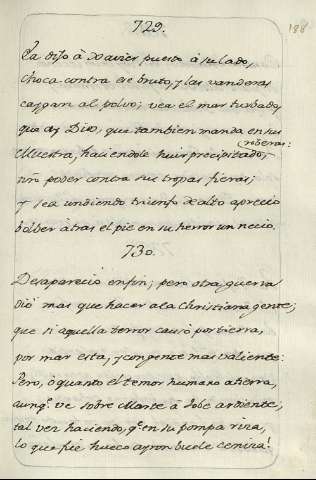 729.
188
Ya dijo à Xavier puesto à su lado,
choca contra ese bruto, y las vanderas
caygam al polvo; vea el mar turbado,
que ay Dios, que tambien manda en sus
riberas:
Muestra, haciendole huir precipitado,
tu poder contra sus tropas fieras;
y sea undiendo triunfo de alto aprecio
bolber àtras el pie en su herror un necio.
730.
Desapareciò enfin; pero otra guerra
diò mas que hacer a la christiana gente;
que si aquella terror causò por tierra,
por mar esta, y con gente mas valiente:
Pero, ò quanto el temor humano aterra,
aunq.e ve sobre Marte à Jobe ardiente;
tal vez haciendo, q.e en su pompa riza,
lo que fue hueco ayron buele ceniza!